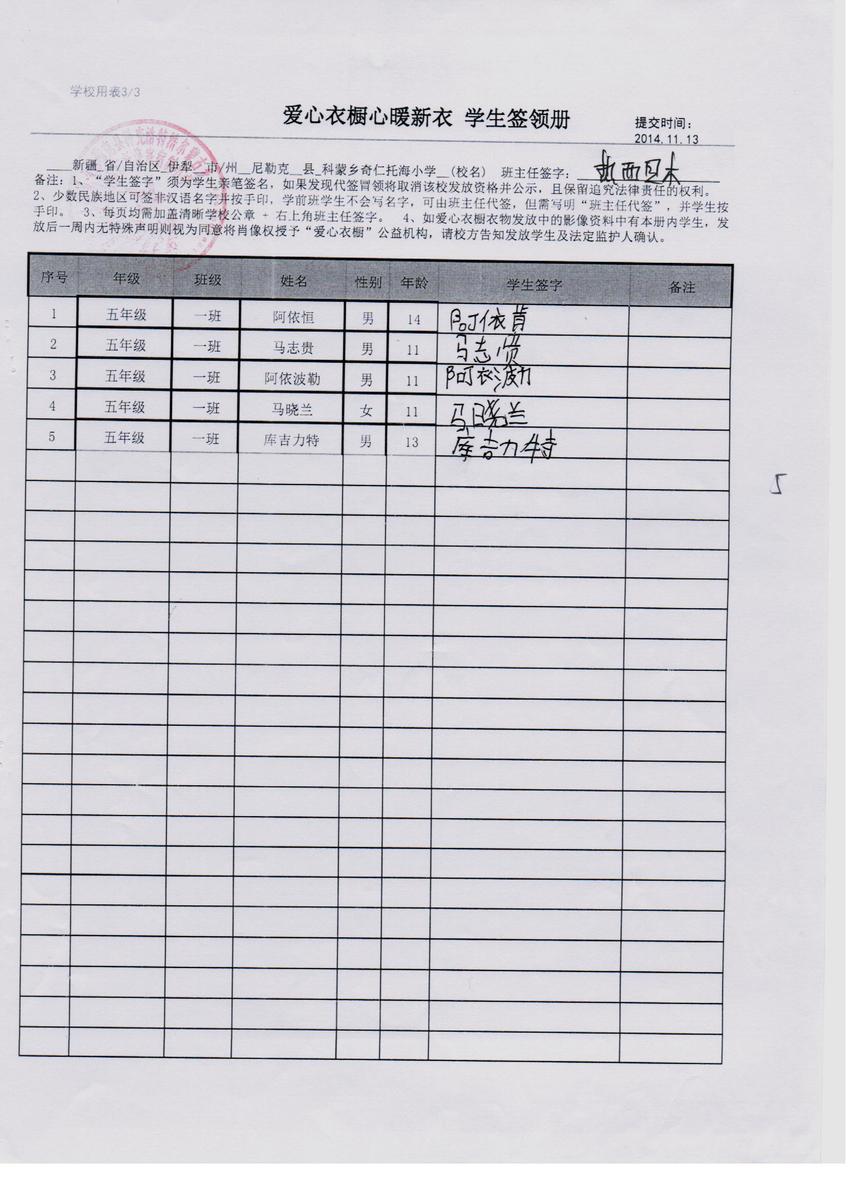 学校用表3/3
爱心衣橱心暖新衣 学生签领册
提交时间:
2014.11.13
新疆_省/自治区_伊犁__市/州__尼勒克__县_科蒙乡奇仁托海小学__(校名) 班主任签字:
备注:1、“学生签字”须为学生亲笔签名,如果发现代签冒领将取消该校发放资格并公示,且保留追究法律责任的权利。
2、少数民族地区可签非汉语名字并按手印,学前班学生不会写名字,可由班主任代签,但需写明“班主任代签”,并学生按
手印。 3、每页均需加盖清晰学校公章 + 右上角班主任签字。 4、如爱心衣橱衣物发放中的影像资料中有本册内学生,发
放后一周内无特殊声明则视为同意将肖像权授予“爱心衣橱”公益机构,请校方告知发放学生及法定监护人确认。
序号 年级 班级 姓名 性别 年龄 学生签字 备注
1 五年级 一班 阿依恒 男 14 阿依肯
2 五年级 一班 马志贵 男 11 马志贵
3 五年级 一班 阿依波勒 男 11 阿衣波力
4 五年级 一班 马晓兰 女 11 马晓兰
5 五年级 一班 库吉力特 男 13 库吉力特
5